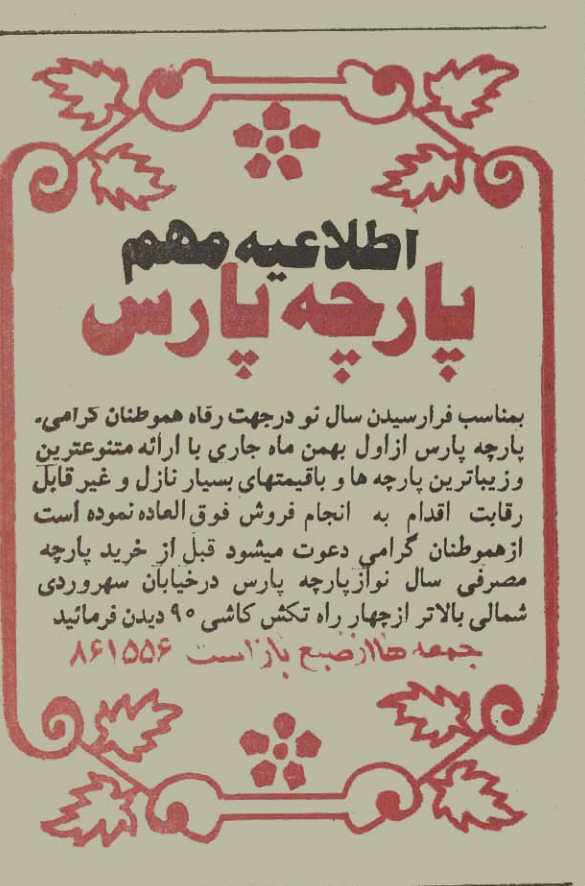 اطلاعیه مهم
پارچه پارس
بمناسب فرارسیدن سال نو درجهت رفاه هموطنان گرامی.
پارچه پارس ازاول بهمن ماه جاری با ارائه متنوعترین
وزیباترین پارچه ها و باقیمتهای بسیار نازل و غیر قابل
رقابت اقدام به انجام فروش فوق العاده نموده است
ازهموطنان گرامی دعوت میشود قبل از خرید پارچه
مصرفی سال نوازپارچه پارس درخیابان سهروردی
شمالی بالاتر ازچهار راه تکش کاشی ۹۰ دیدن فرمائید
جمعه ها ازصبح باز است ۸۶۱۵۵۶